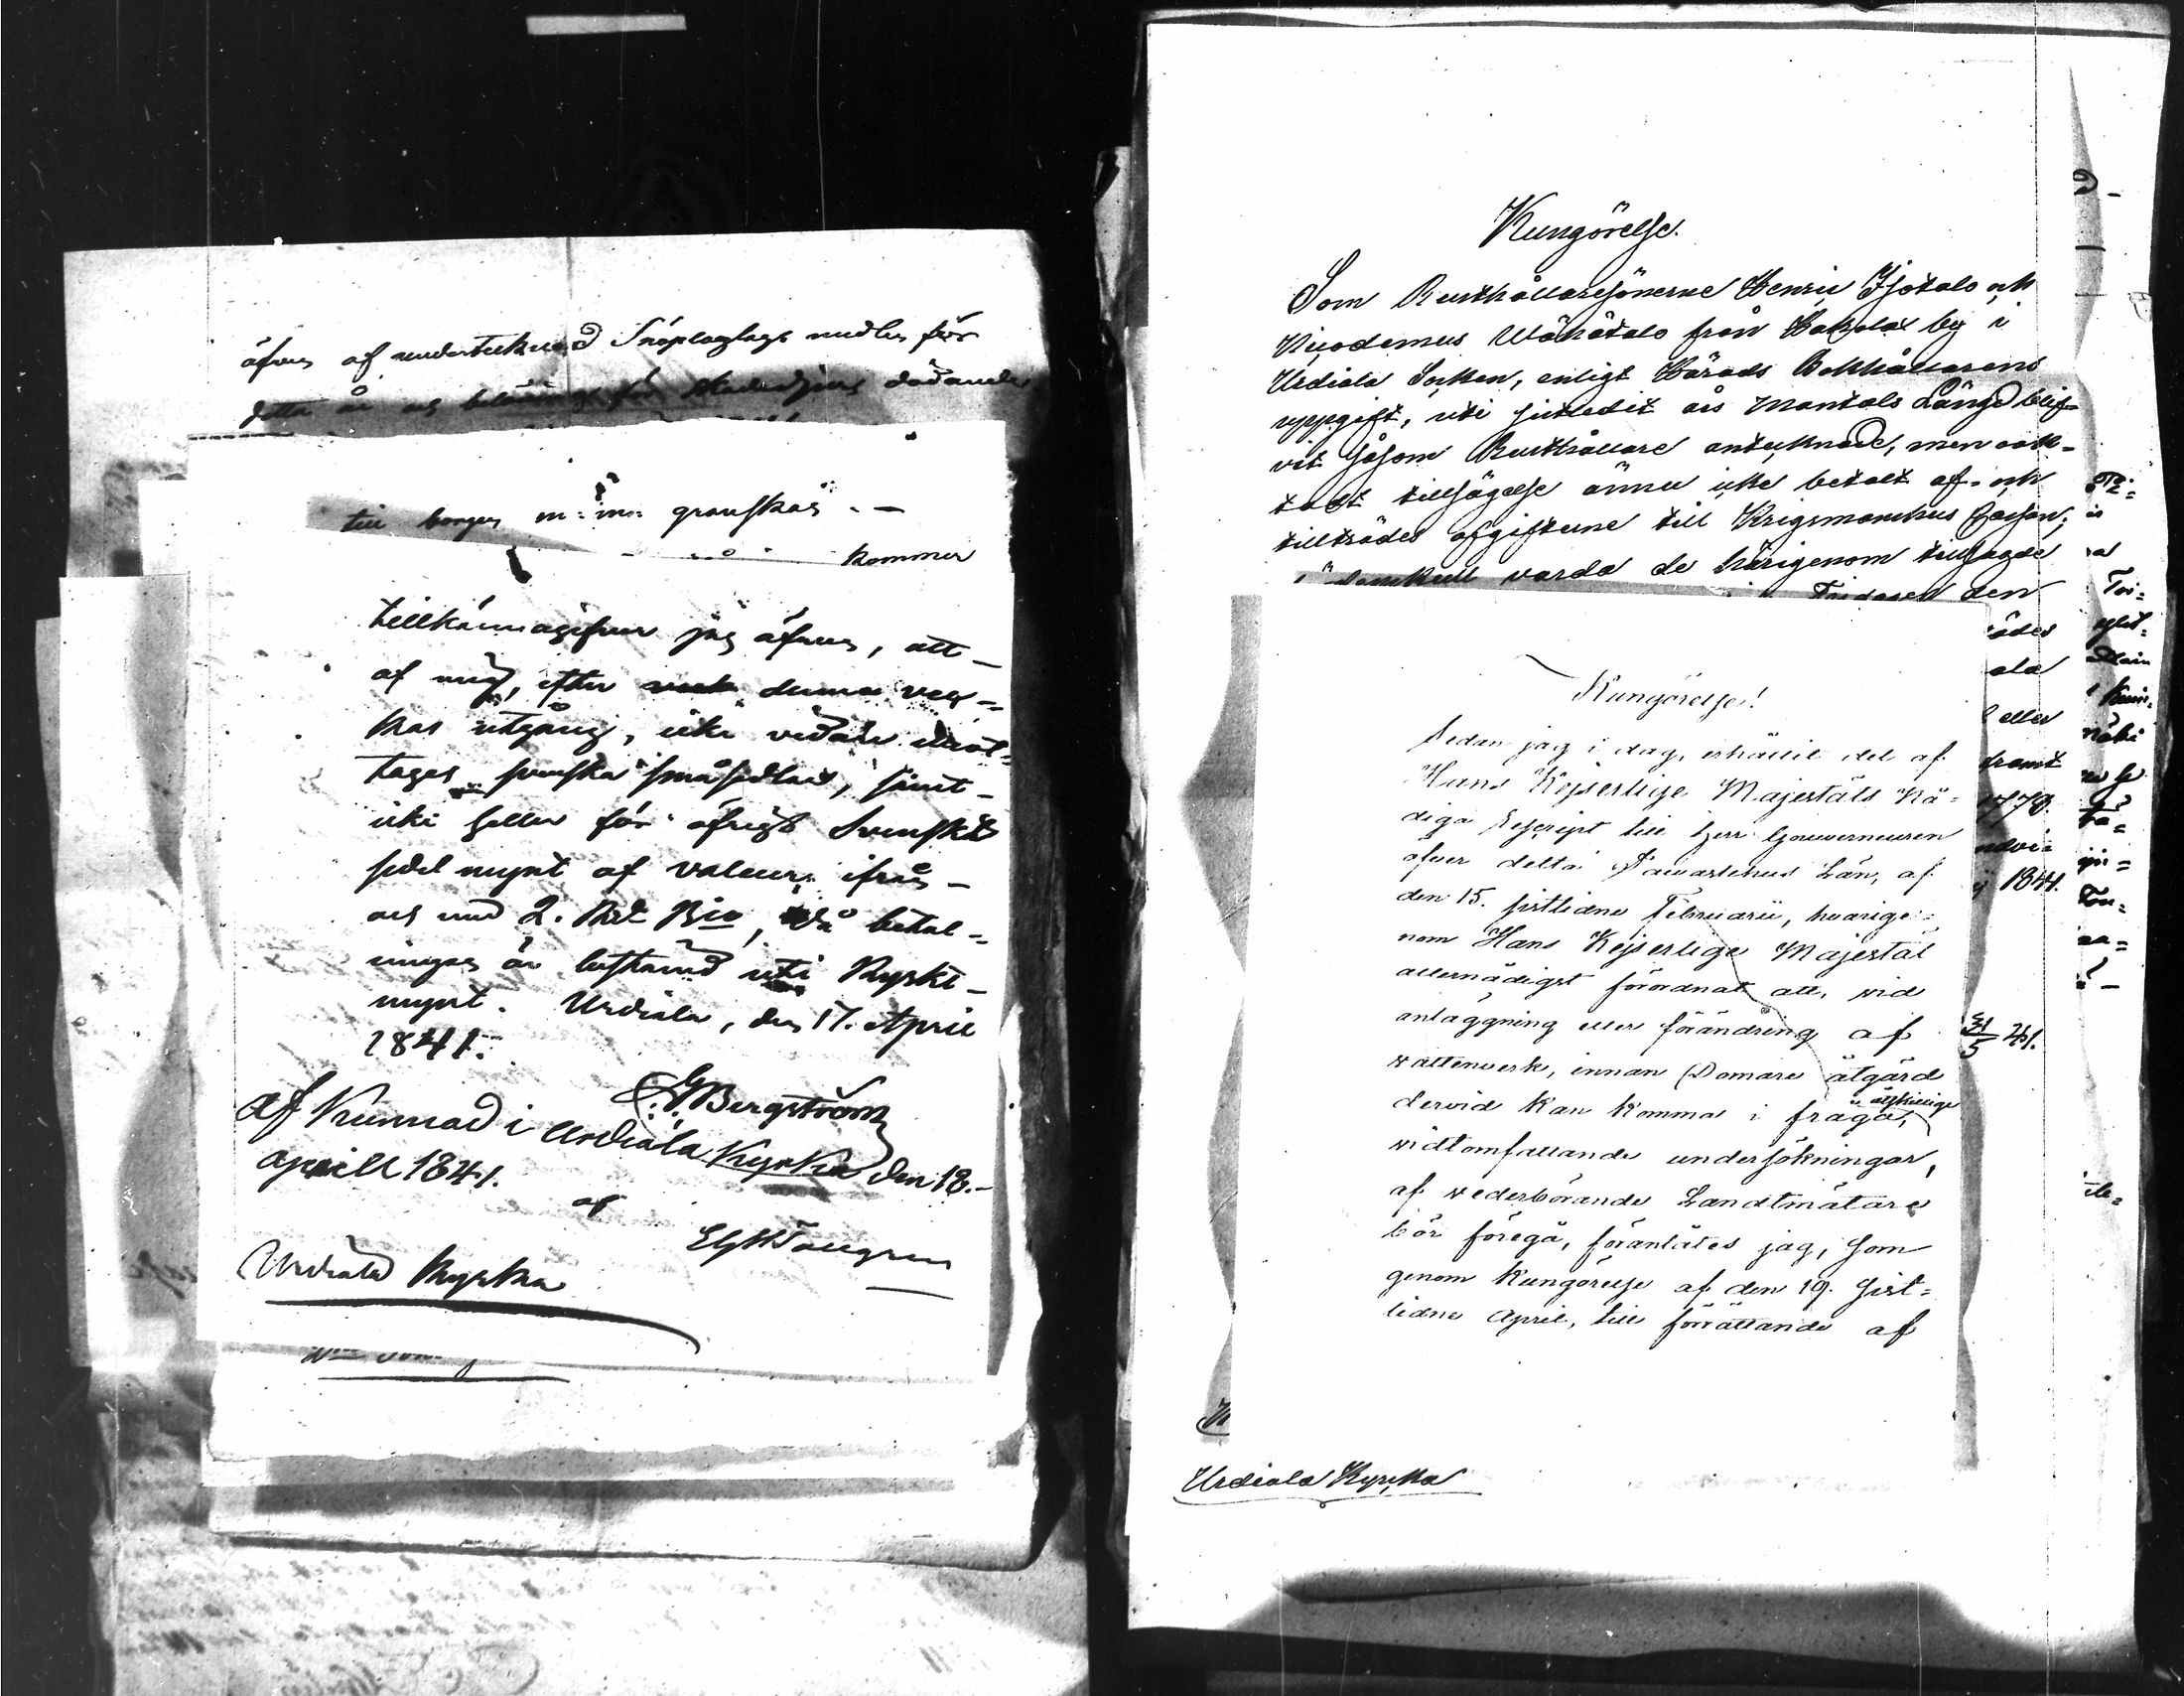 äfven af undertecknad Snöplogslags medlen för
detta år och betalning för dödande
till borgen m: m: granskas. —
kommer
tillkännagifver jag äfven, att
af mig, efter denna vec-
kas utgång, icke vidare emot-
tages svenska småsedlar, samt
icke heller för öfrigt Svenskt
sedel mynt af valeur ifrån
och med 2. Rd Bco, då betal-
ningen är bestämd uti Ryskt
mynt. Urdiala, den 17. April
1841.
Bergström
af Kunnad i Urdiala Kyrka den 18.-
aprill 1841.
af
Urdiala Kyrka
Kungörelse.
Som Rusthållaresönerne Henric Isotalo och
Nicodemus Wähätalo från Hakolax by i
Urdiala Socken, enligt Härads Bokhållarens
uppgift, uti sistledit års Mantals Längd blif-
vit såsom Rusthållare antecknade, men oak-
tadt tillsägelse ännu icke betalt af- och
tillträdes afgifterne till Krigsmanshus Cassan;
varda de härigenom tillsagde
Fridagen den
ädes
ala
eller
framt
1778.
ndvi-
1841.
31/5 41.
Kungörelse!
Sedan jag i dag, erhållit del af
Hans Kejserlige Majestäts Nå-
diga Rescript till Herr Gouverneuren
öfver detta Tawastehus Län, af
den 15. sistlidne Februarii, hvarige-
nom Hans Kejserlige Majestät
allernådigst förordnat att, vid
anläggning eller förändring af
vattenverk, innan Domare åtgärd
dervid kan komma i fråga, åtskillige
vidtomfattande undersökningar,
af vederbörande Landtmätare
bör föregå, föranlåtes jag, som
genom Kungörelse af den 19. sist-
lidne April, till förrättande af
Urdiala Kyrka